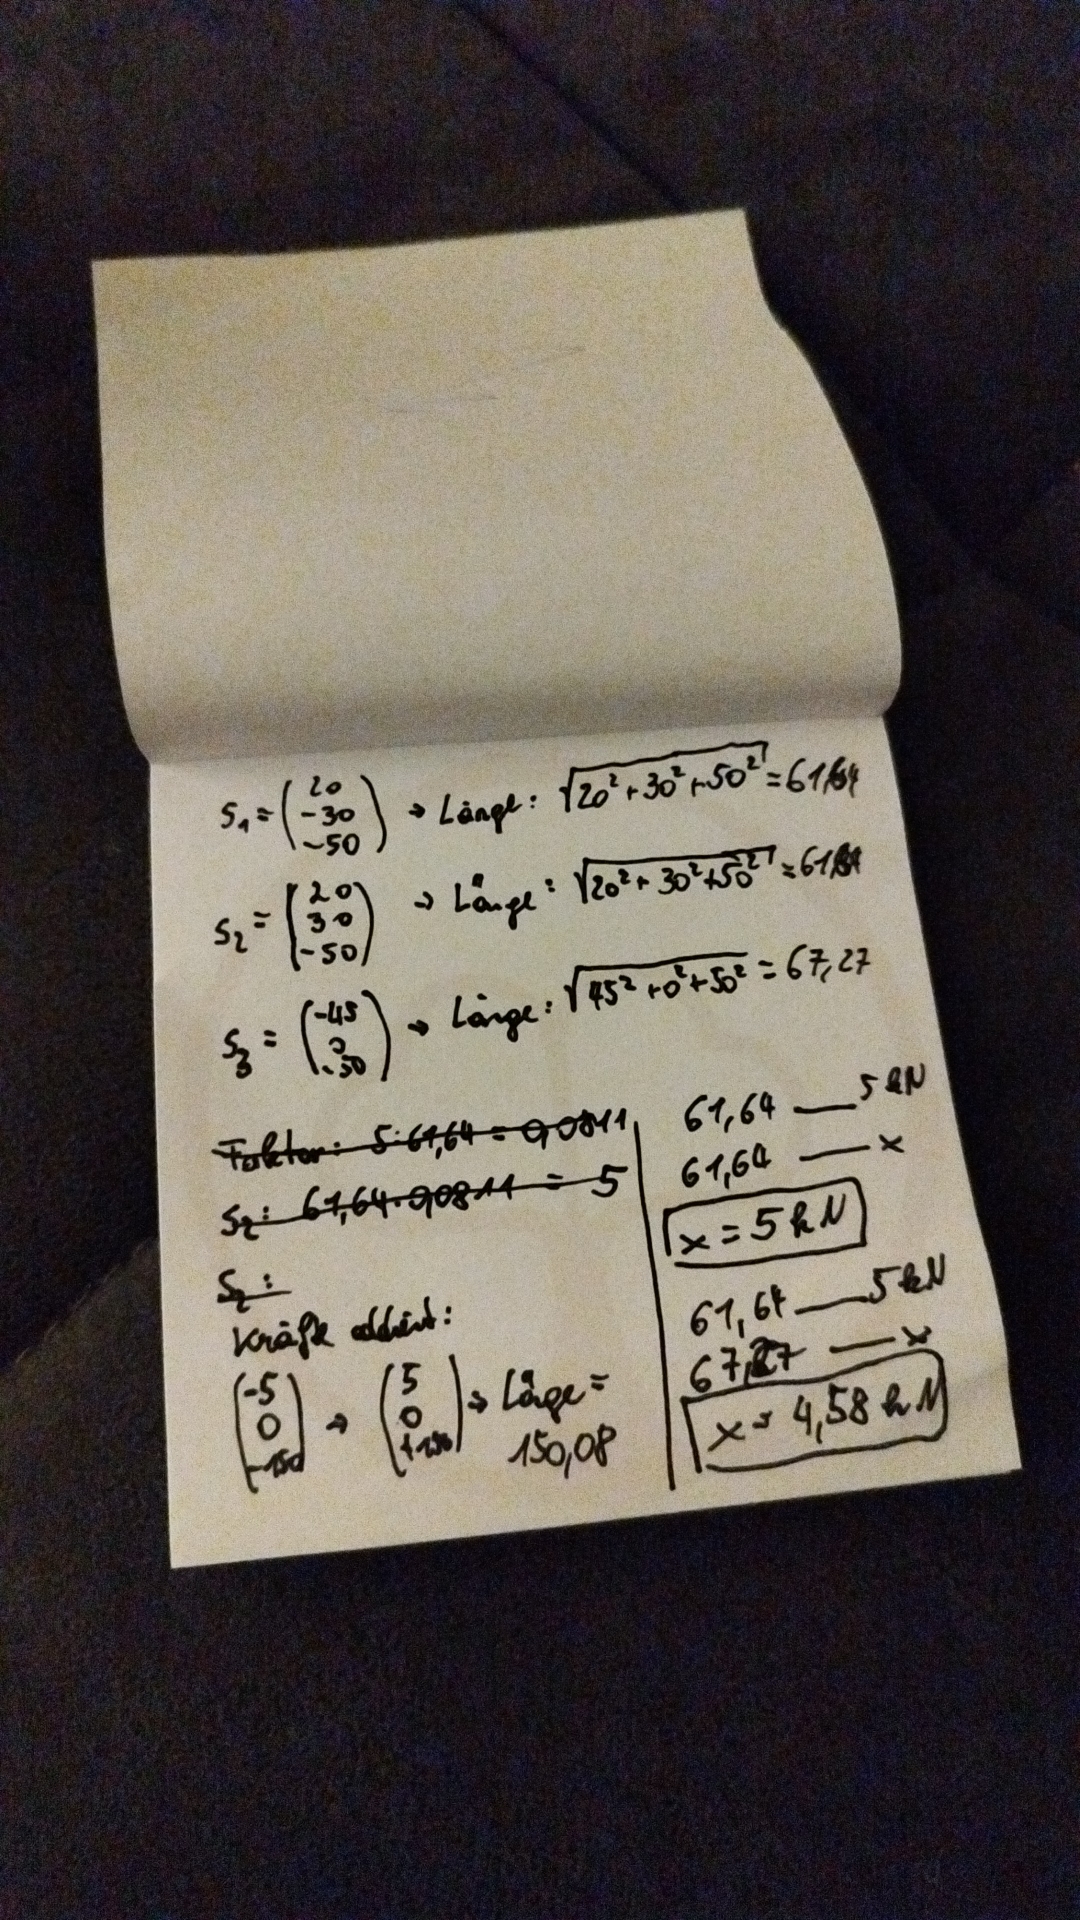 S₁ = (20 -30 -50) → Länge: √20² + 30² + 50² = 61,64
S₂ = (20 30 -50) → Länge: √20² + 30² + 50² = 61,64
S₃ = (-45 0 -50) → Länge: √45² + 0² + 50² = 67,27
Faktor: 5:61,64 = 0,0811
S₂: 61,64·0,0811 = 5
S₂:
Kräfte addiert:
(-5 0 -150) → (5 0 +150) → Länge =
150,08
61,64 — 5 kN
61,64 — x
x = 5 kN
61,64 — 5 kN
67,27 — x
x = 4,58 kN